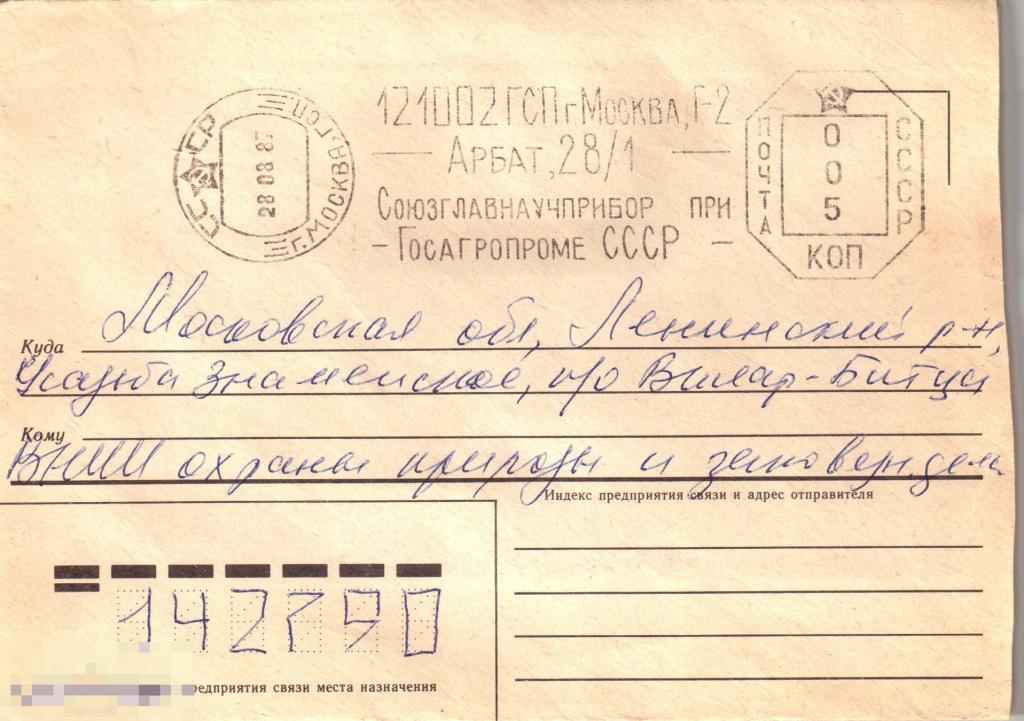 СССР г. МОСКВА, ГСП
28 08 87
121002 ГСП г. МОСКВА, Г-2
АРБАТ, 28/1
СОЮЗГЛАВНАУЧПРИБОР ПРИ
- ГОСАГРОПРОМЕ СССР -
ПОЧТА СССР
005
КОП
Куда Московская обл, Ленинский р-н,
Усадьба Знаменское, п/о Вилар-Битца
Кому
ВНИИ охраны природы и заповедн. дела
Индекс предприятия связи и адрес отправителя
142790
предприятия связи места назначения